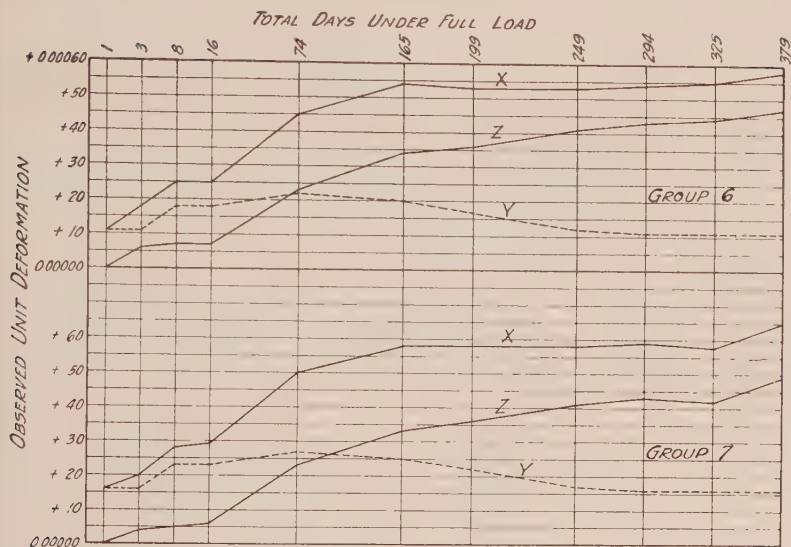 TOTAL DAYS UNDER FULL LOAD
1 3 8 16 74 165 199 249 294 325 379
OBSERVED UNIT DEFORMATION
+ 0.00060
+ 50
+ 40
+ 30
+ 20
+ 10
0.00000
X
Z
Y
GROUP 6
+ 60
+ 50
+ 40
+ 30
+ 20
+ .10
0.00000
X
Z
Y
GROUP 7